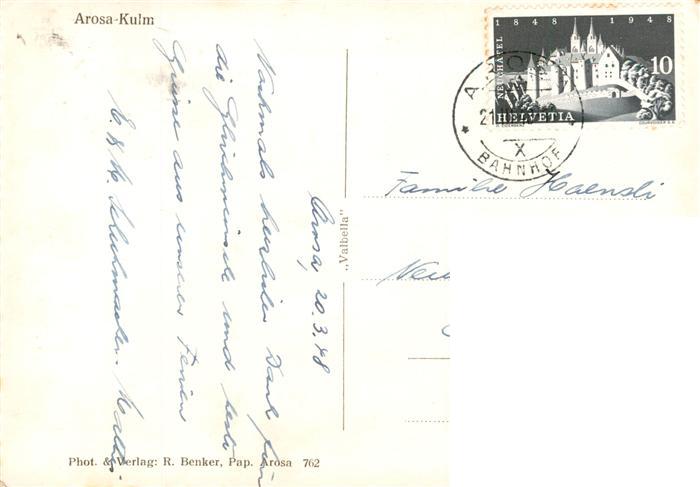 Arosa-Kulm
Arosa, 20.3.48
Nochmals herzlichen Dank für
die Glückwünsche und beste
Grüsse aus unseren Ferien
Phot. & Verlag: R. Benker, Pap. Arosa 762
„Valbella"
1848 1948
NEUCHÂTEL
10
HELVETIA
AROSA
21
X
BAHNHOF
Familie Haensli